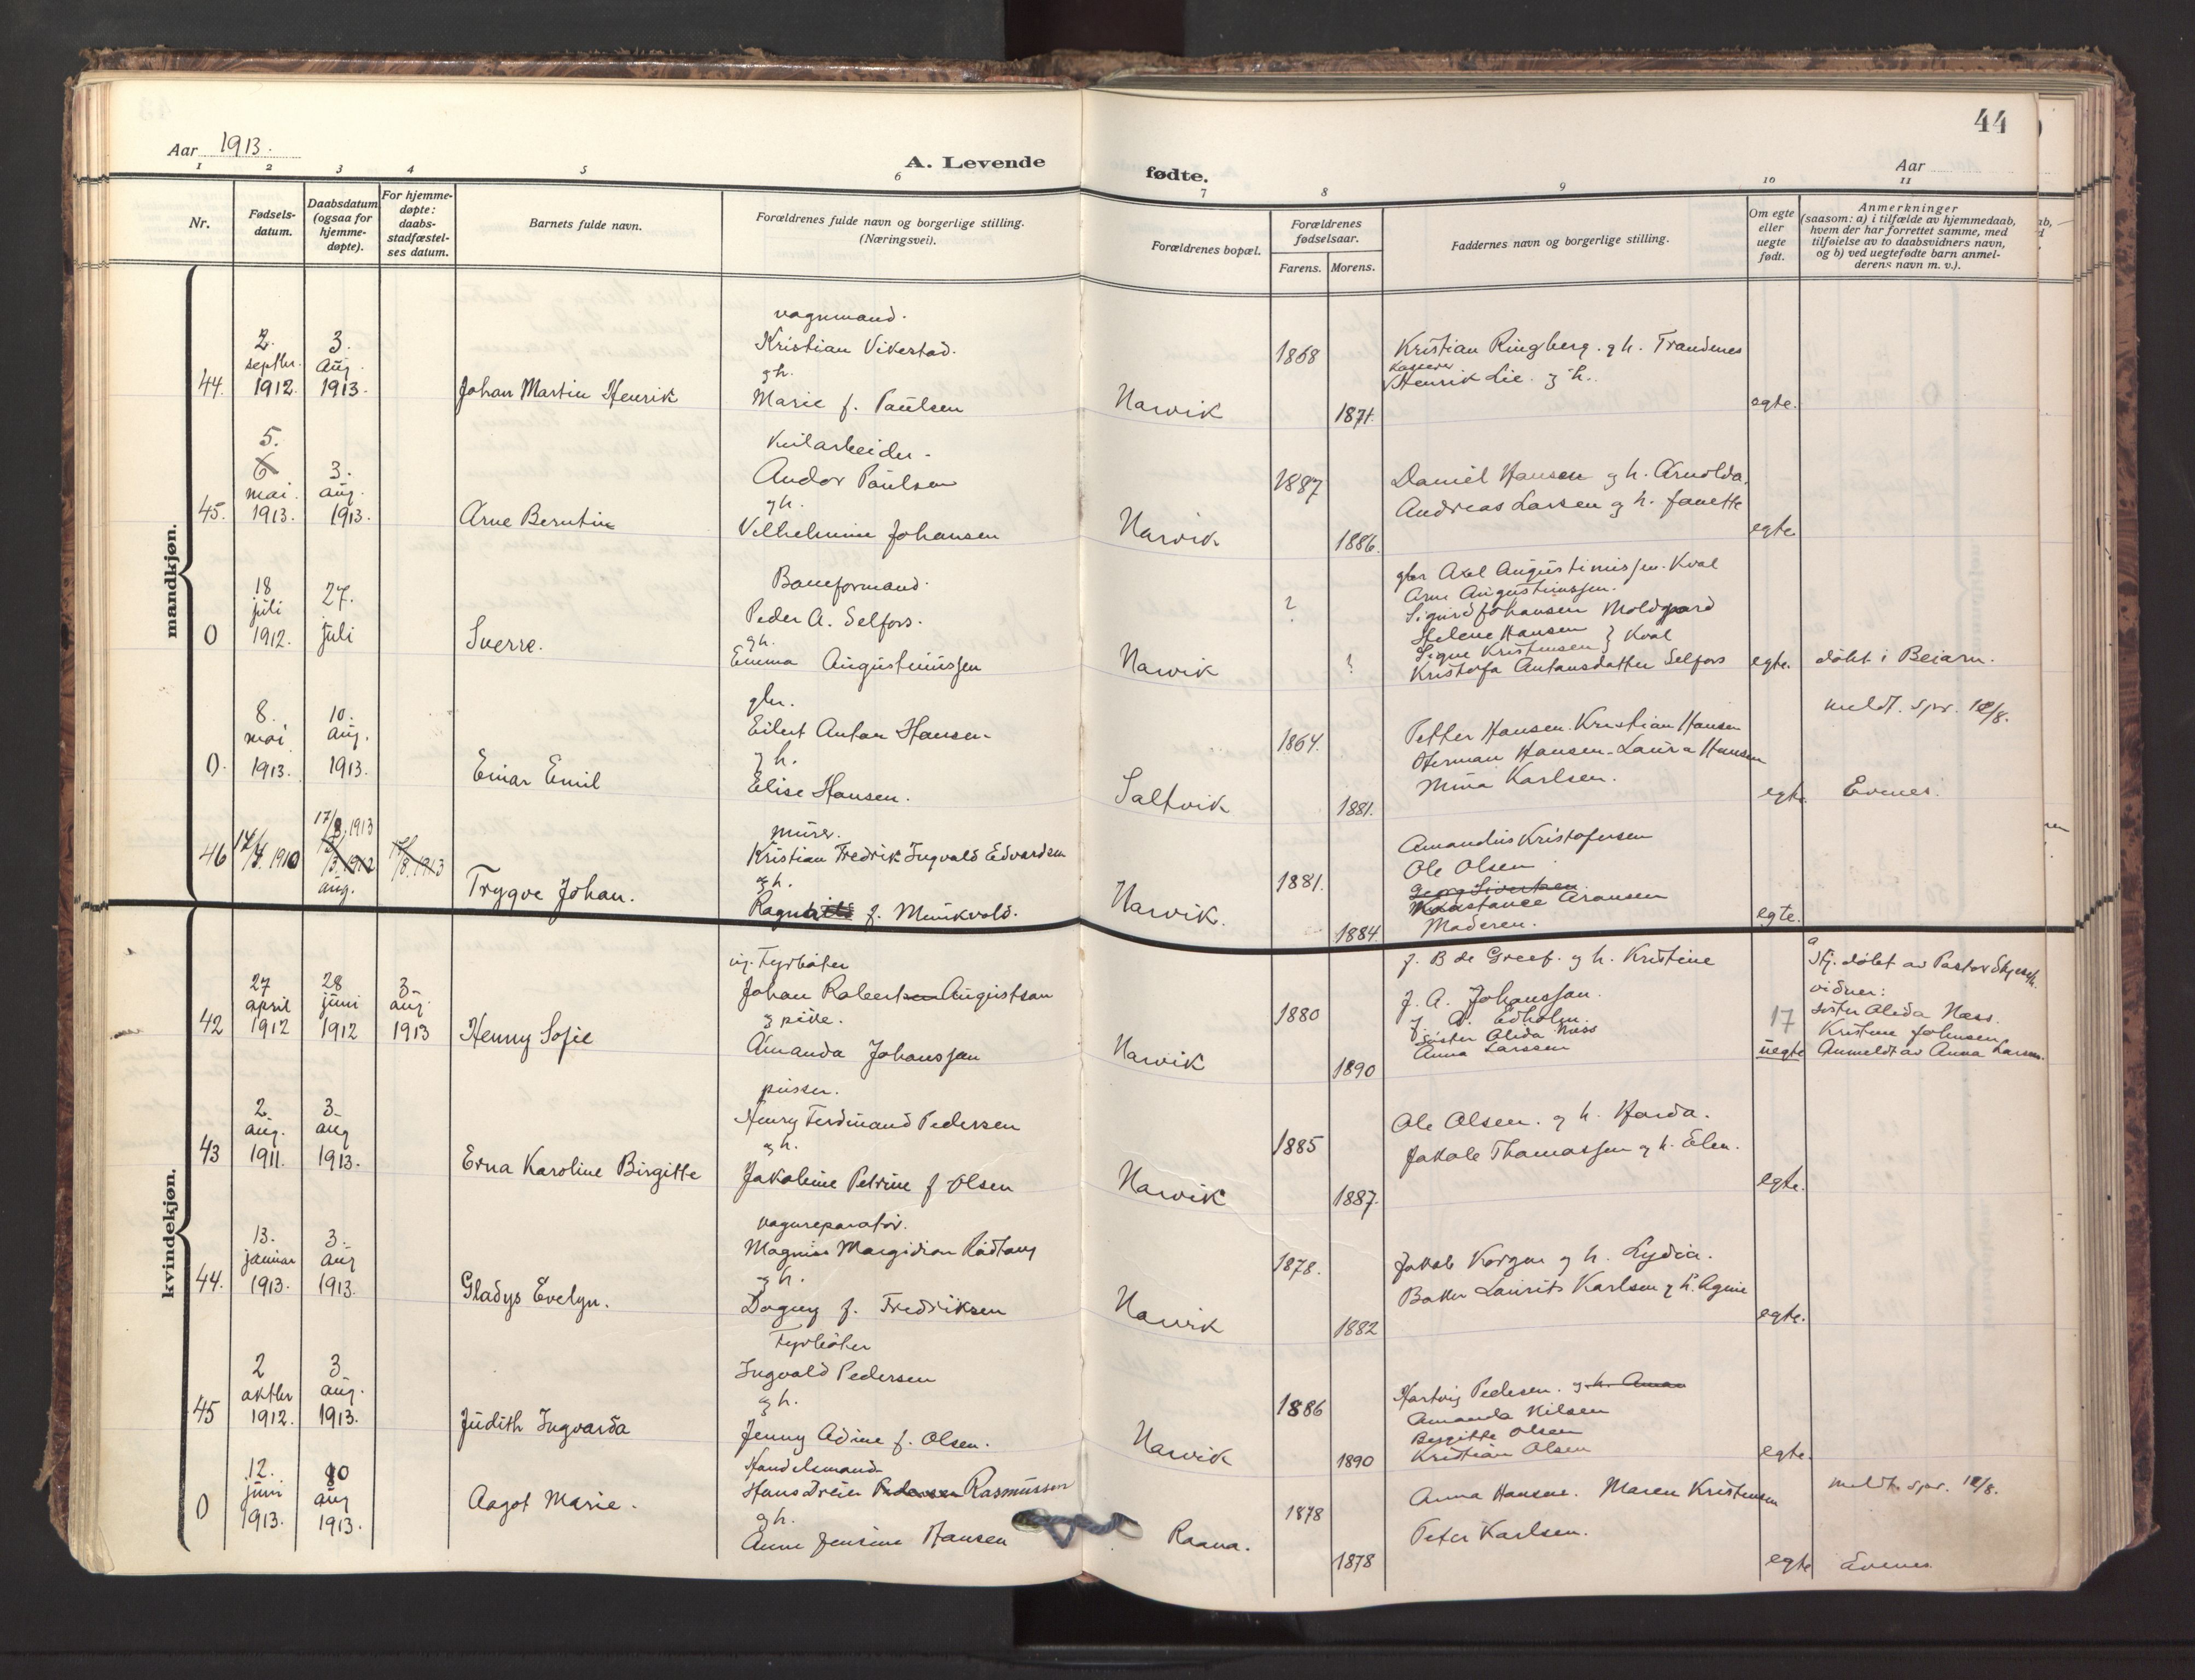 44
Aar 1913.
A. Levende
fødte.
Aar
1 2 3 4 5 6 7 8 9 10 11
Nr.
Fødsels-
datum.
Daabsdatum
(ogsaa for
hjemme-
døpte).
For hjemme-
døpte:
daabs-
stadfæstel-
ses datum.
Barnets fulde navn.
Forældrenes fulde navn og borgerlige stilling.
(Næringsvei).
Forældrenes bopæl.
Forældrenes
fødselsaar.
Farens. Morens.
Faddernes navn og borgerlige stilling.
Om egte
eller
uegte
født.
Anmerkninger
(saasom: a) i tilfælde av hjemmedaab,
hvem der har forrettet samme, med
tilføielse av to daabsvidners navn,
og b) ved uegtefødte barn anmel-
derens navn m. v.).
mandkjøn.
44.
2.
septbr.
1912.
3.
aug.
1913.
Johan Martin Henrik
vognmand.
Kristian Vikestad.
g h.
Marie f. Paulsen
Narvik
1868
1871.
Kristian Ringberg. g h. Trandenes
Kasserer
Henrik Lie. g h.
egte.
45.
5.
6
mai.
1913.
3.
aug.
1913.
Arne Berntin
Kularbeider.
Andor Paulsen
g h.
Vilhelmine Johansen
Narvik
1887
1886.
Daniel Hansen g h. Arnolda.
Andreas Larsen g h. Janette
egte
0
18
juli
1912.
27.
juli
Sverre.
Baneformand.
Peder A. Selfors.
g h.
Emma Augustinussen
Narvik
?
?
gbr Axel Augustinussen. Kval
Arne Augustinussen.
Sigurd Johansen Moldgaard
Helene Hansen } Kval
Signe Kristensen
Kristofa Antonsdatter Selfors
egte.
døbt i Beiarn.
0.
8.
mai
1913.
10.
aug.
1913.
Einar Emil
gbr.
Eilert Anton Hansen.
g h.
Elise Hansen.
Saltvik
1864.
1881.
Petter Hansen. Kristian Hansen
Herman Hansen. Laura Hansen
Mina Karlsen.
egte
meldt. spr. 12/8.
Evenes.
46
14/4. 1910
17/8. 1913
aug.
Trygve Johan.
murer.
Kristian Fredrik Ingvald Edvardsen
g h.
f. Munkvold.
Narvik.
1881.
1884.
Amandus Kristofersen
Ole Olsen
Georg Sivertsen
Konstance Aronsen
Moderen.
egte.
kvindekjøn.
42
27
april
1912
28
juni
1912
3.
aug
1913
Henny Sofie
ug. Fyrbøter
Johan Robert Augustson
g pike.
Amanda Johanssan
Narvik
1880
1890
J. B de Greef. g h. Kristine
J. A. Johanssan.
J. A. Edholm.
Søster Alida Næss
Anna Larssen
17
uegte
a
Hj. døbt av Pastor
vidner:
søster Alida Næss.
Kristine Johnsen
Anmeldt av Anna Larsen.
43
2
aug.
1911.
3.
aug
1913.
Erna Karoline Birgitte
pusser.
Henry Ferdinand Pedersen
g h.
Jakobine Petrine f Olsen
Narvik
1885
1887.
Ole Olsen. g h. Harda.
Jakob Thomassen g h. Elen.
egte.
44.
13.
januar
1913.
3.
aug
1913.
Gladys Evelyn.
vognreparatør.
Magnus Margidian Rødtang
g h.
Dagny f. Fredriksen
Narvik
1878.
1882
Jakob Korgen g h. Lydia.
Baker Laurits Karlsen g h. Agnie
egte.
45
2
oktbr
1912.
3
aug.
1913.
Judith Ingvarda
Fyrbøter
Ingvald Pedersen
g h.
Jenny Adine f. Olsen.
Narvik
1886
1890
Hartvig Pedersen. g. h. Aman
Amanda Nilsen
Bergitte Olsen
Kristian Olsen
egte.
0
12.
juni
1913.
10
aug
1913.
Aagot Marie.
Handelsmand
Hans Dreier Pedersen Rasmussen
g h.
Anne Jensine Hansen
Raana.
1878
1878
Anna Hansene. Maren Kristensen
Peter Karlsen.
egte
meldt. spr. 12/8.
Evenes